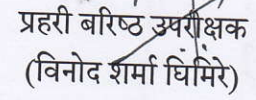 प्रहरी बरिष्ठ उपरीक्षक
(विनोद शर्मा घिमिरे)